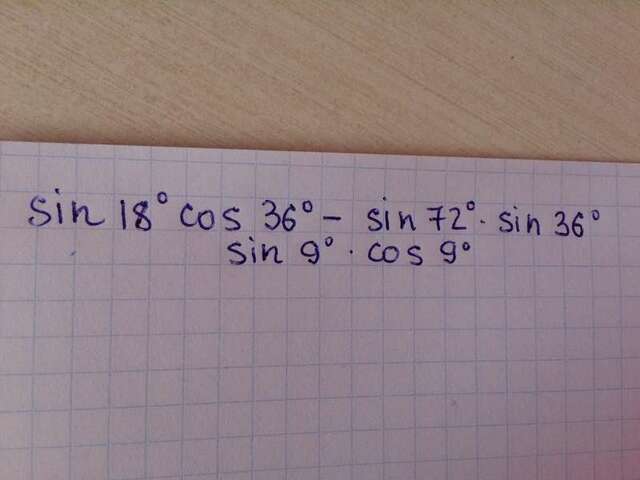 sin 18° cos 36° - sin 72° · sin 36°
sin 9° · cos 9°